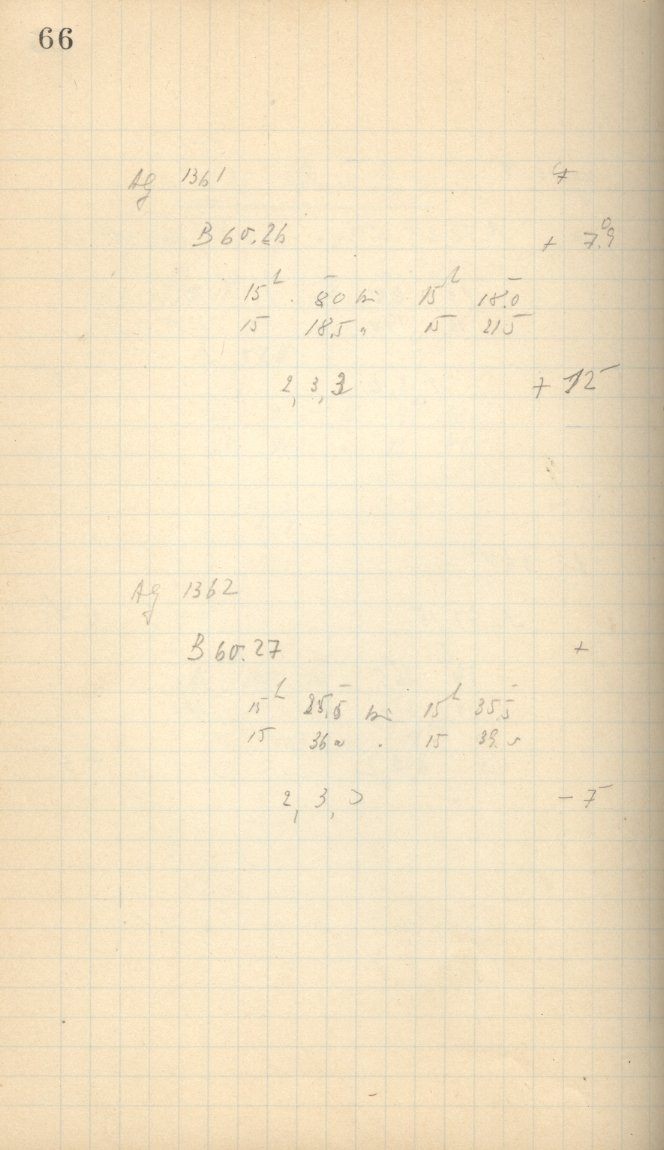 66
Ag 1361 7
B 60.26 + 7.9
15h 8,0 bis 15h 18,0
15 18,5 " 15 21 5
2, 3, 3 + 12
Ag 1362
B 60.27 +
15h 25,5 bis 15h 35 5
15 36 0 " 15 39.
2, 3, 3 - 7